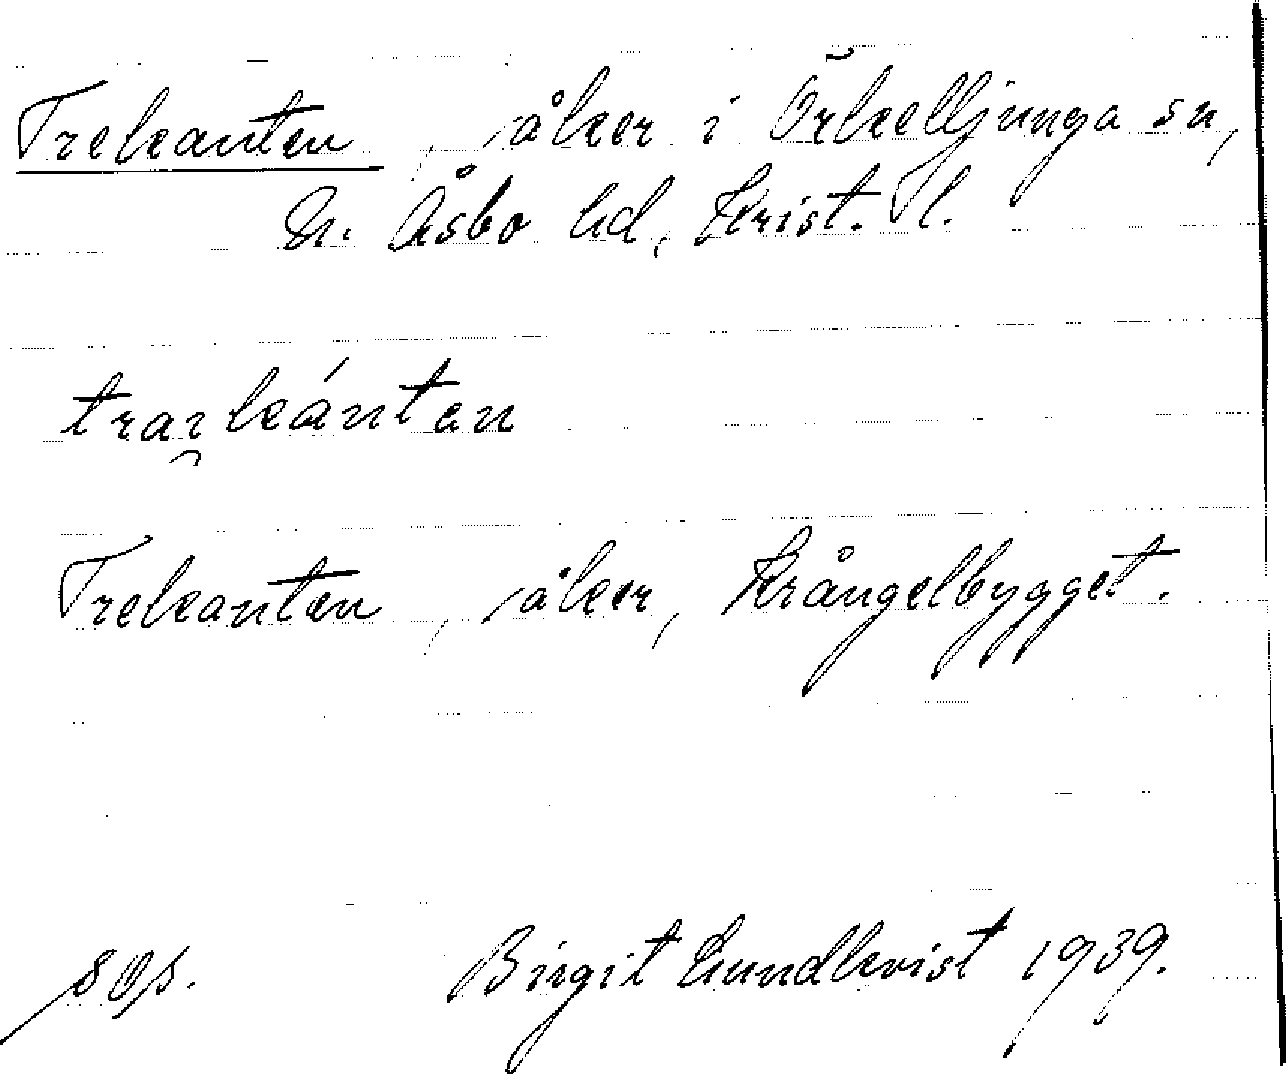 Trekanten, åker i Örkelljunga sn,
N. Åsbo hd, Krist. l.
trai̯kántən
Trekanten, åker, Krångelbygget.
Birgit Lundkvist 1939.